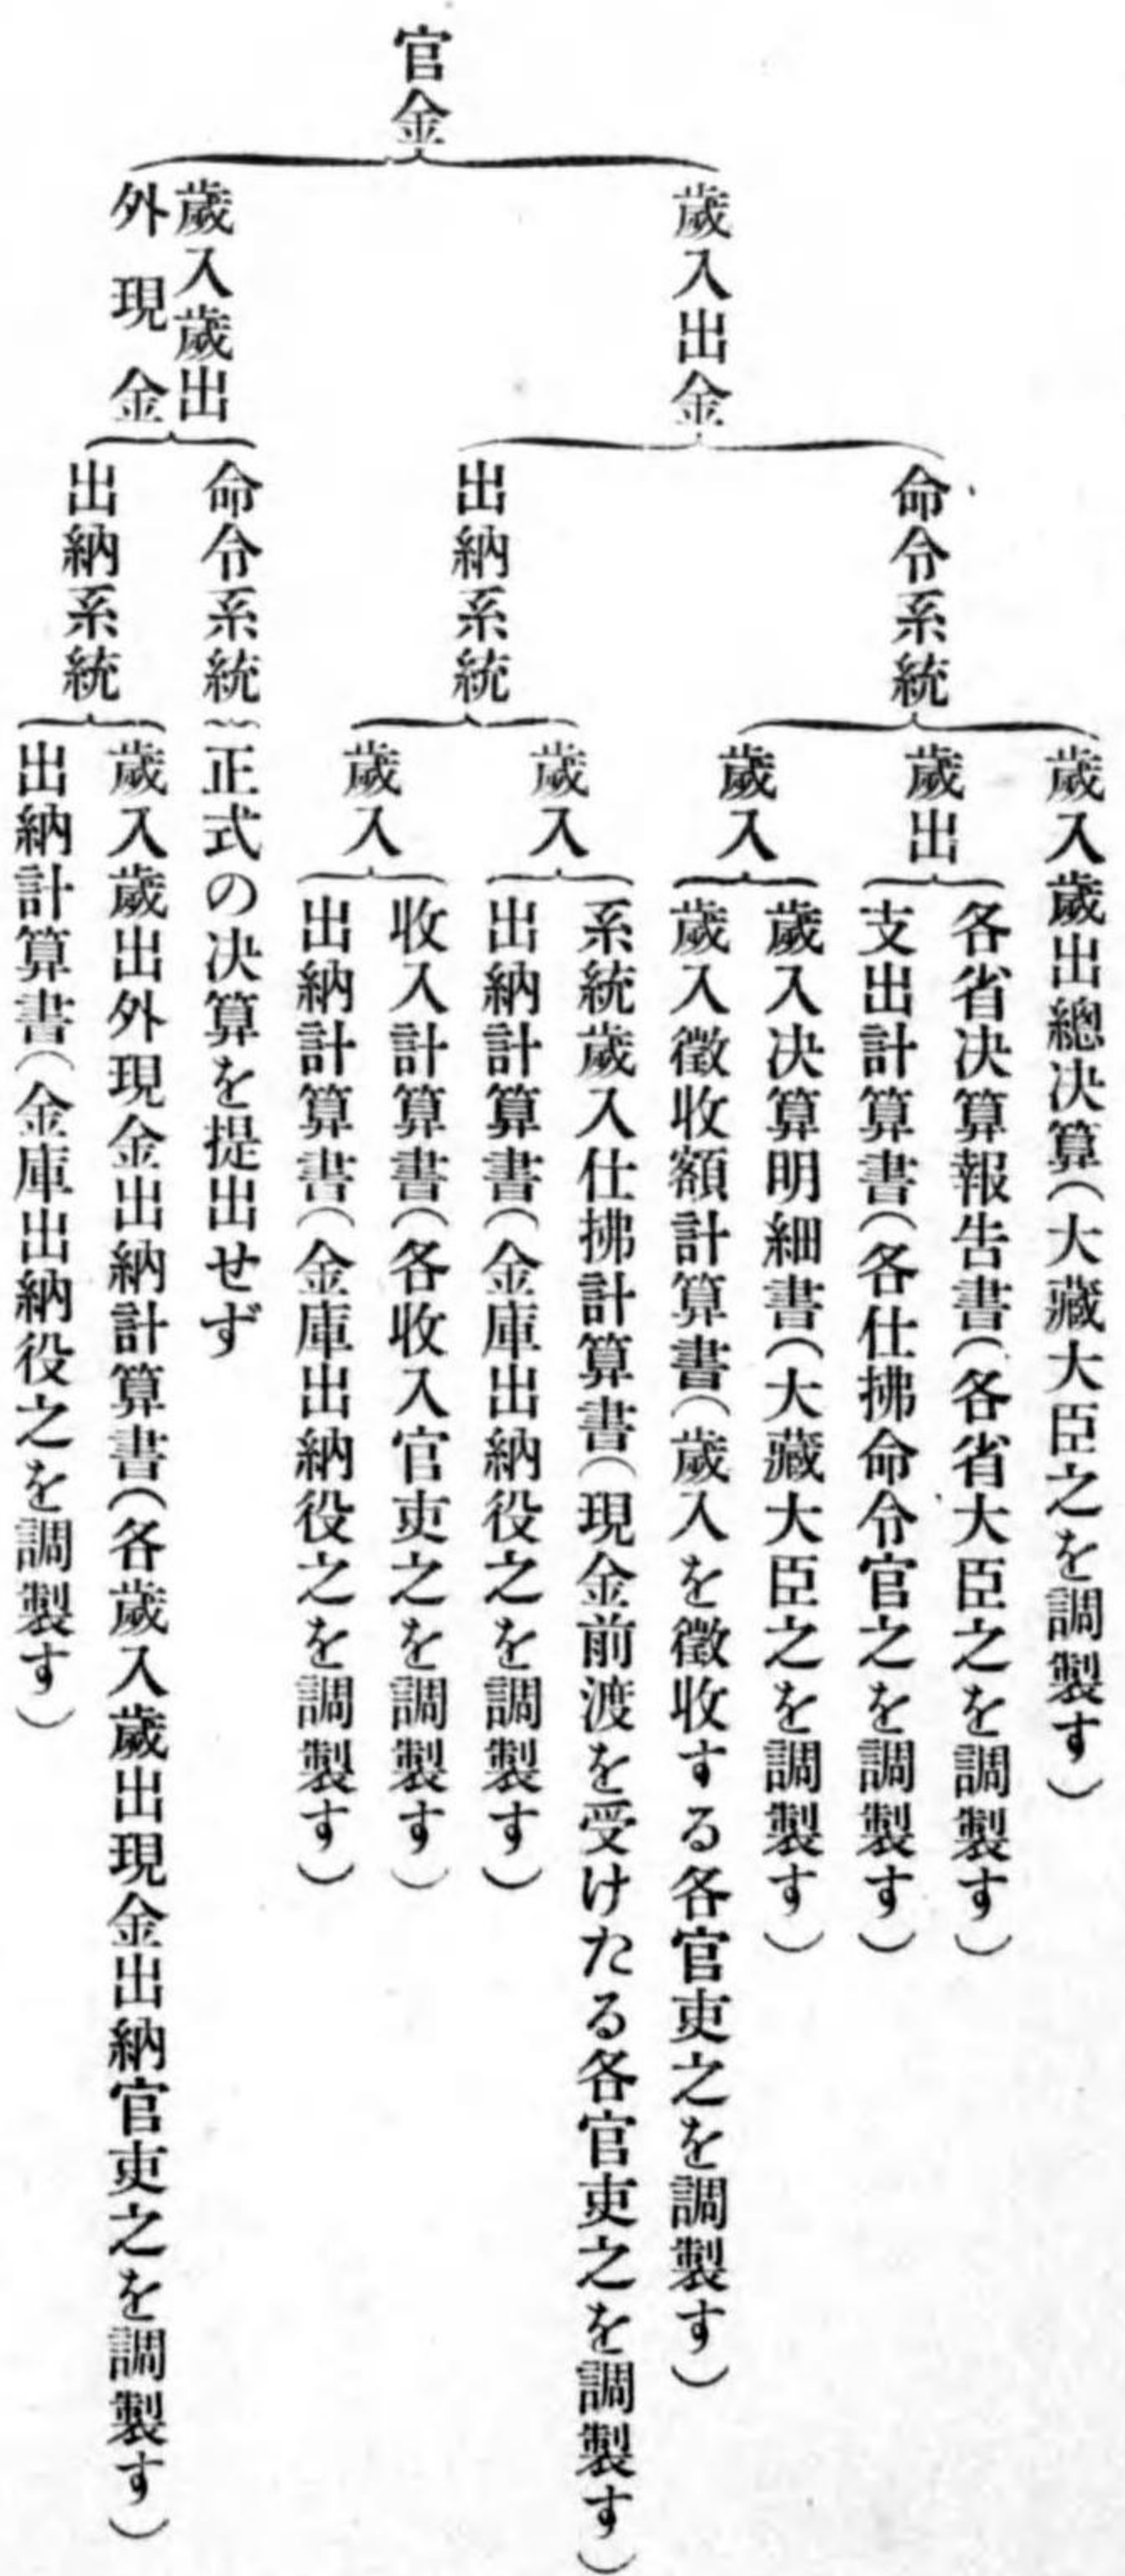 官金
歲入出金
命令系統
歲入歲出總决算(大藏大臣之を調製す)
歲出
各省决算報告書(各省大臣之を調製す)
支出計算書(各仕拂命令官之を調製す)
歲入
歲入决算明細書(大藏大臣之を調製す)
歲入徵收額計算書(歲入を徵收する各官吏之を調製す)
出納系統
歲入
系統歲入仕拂計算書(現金前渡を受けたる各官吏之を調製す)
出納計算書(金庫出納役之を調製す)
歲入
收入計算書(各收入官吏之を調製す)
出納計算書(金庫出納役之を調製す)
歲入歲出
外現金
命令系統
正式の决算を提出せず
出納系統
歲入歲出外現金出納計算書(各歲入歲出現金出納官吏之を調製す)
出納計算書(金庫出納役之を調製す)